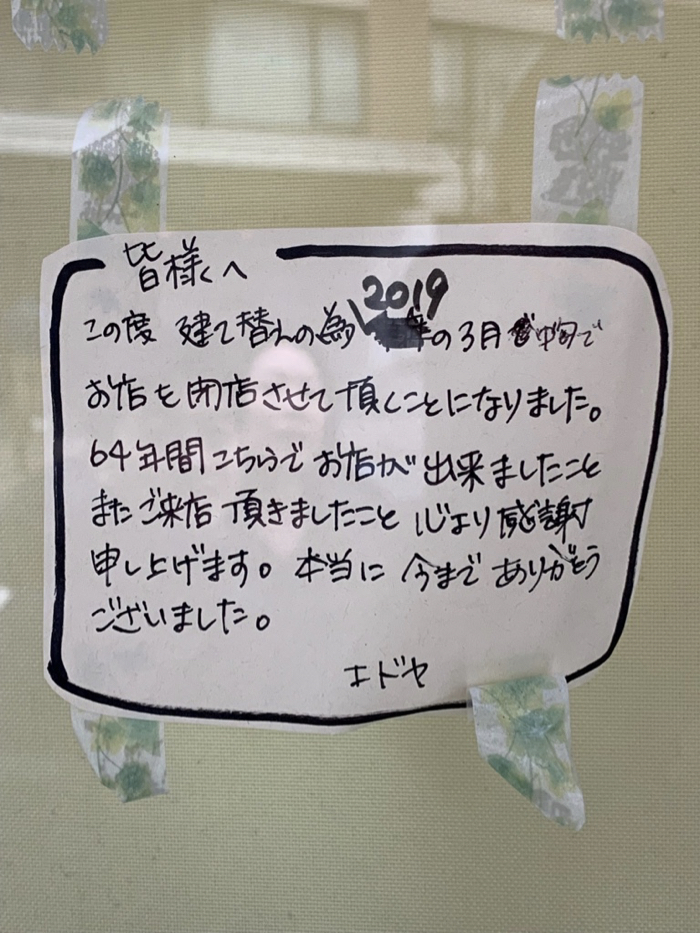 皆様へ
この度 建て替えの為 2019の3月中旬で
お店を閉店させて頂くことになりました。
64年間こちらでお店が出来ましたこと
またご来店頂きましたこと 心より感謝
申し上げます。本当に今までありがとう
ございました。
エドヤ